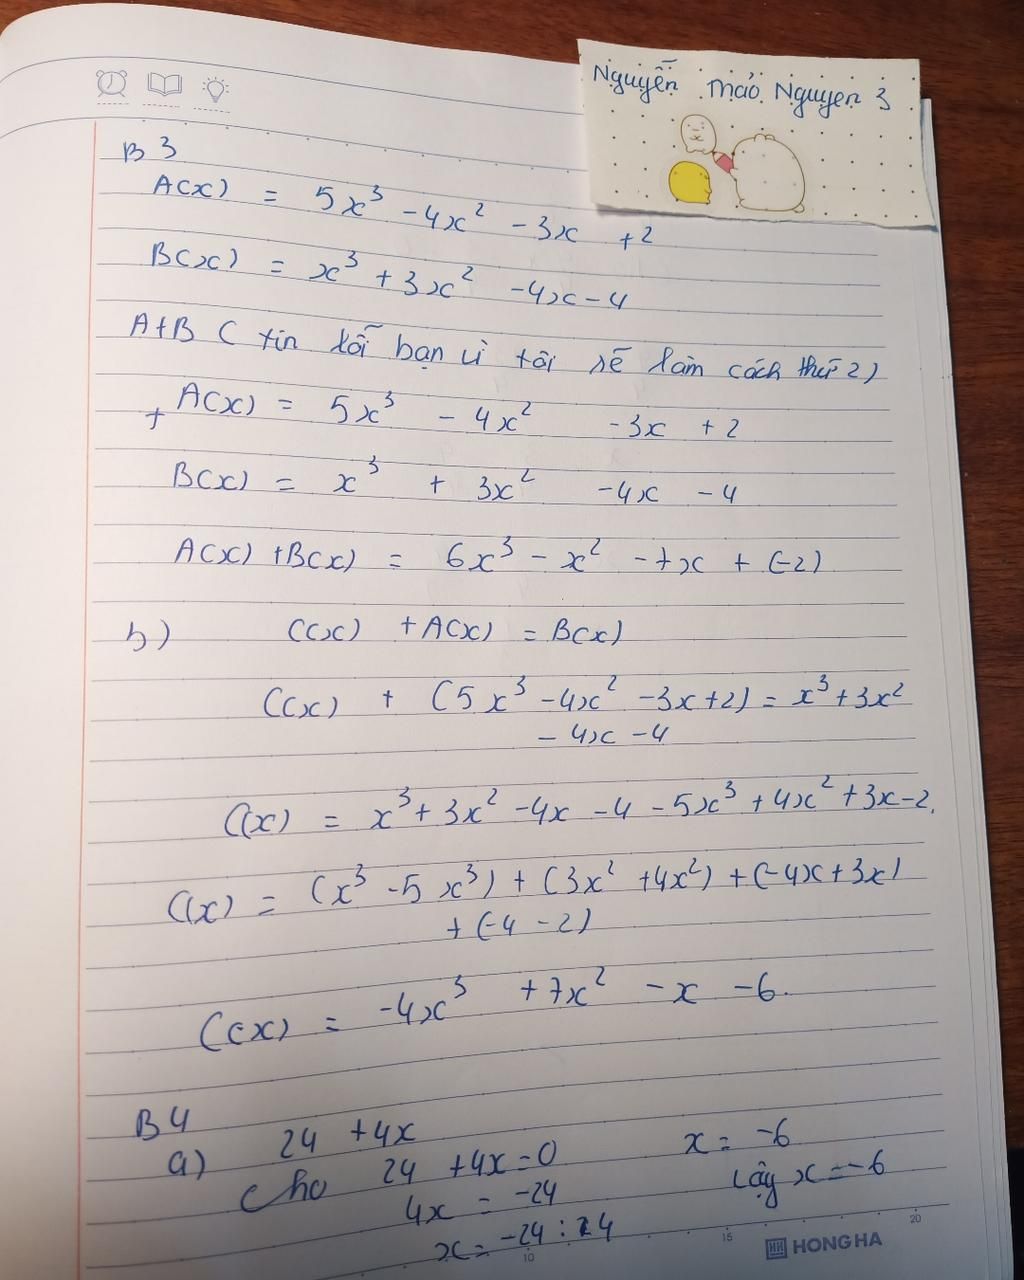 Nguyễn Thảo Nguyen 3
B 3
A(x) = 5x³ - 4x² - 3x + 2
B(x) = x³ + 3x² - 4x - 4
A+B ( tin lỗi bạn vì tôi sẽ làm cách thứ 2)
+ A(x) = 5x³ - 4x² - 3x + 2
B(x) = x³ + 3x² - 4x - 4
A(x) + B(x) = 6x³ - x² - 7x + (-2)
b) C(x) + A(x) = B(x)
C(x) + (5x³ - 4x² - 3x + 2) = x³ + 3x²
- 4x - 4
C(x) = x³ + 3x² - 4x - 4 - 5x³ + 4x² + 3x - 2.
C(x) = (x³ - 5x³) + (3x² + 4x²) + (-4x + 3x)
+ (-4 - 2)
C(x) = -4x³ + 7x² - x - 6.
B 4
a) 24 + 4x
Cho 24 + 4x = 0
4x = -24
x = -24 : 4
x = -6
Lậy x = -6
10 15 20
HONG HA